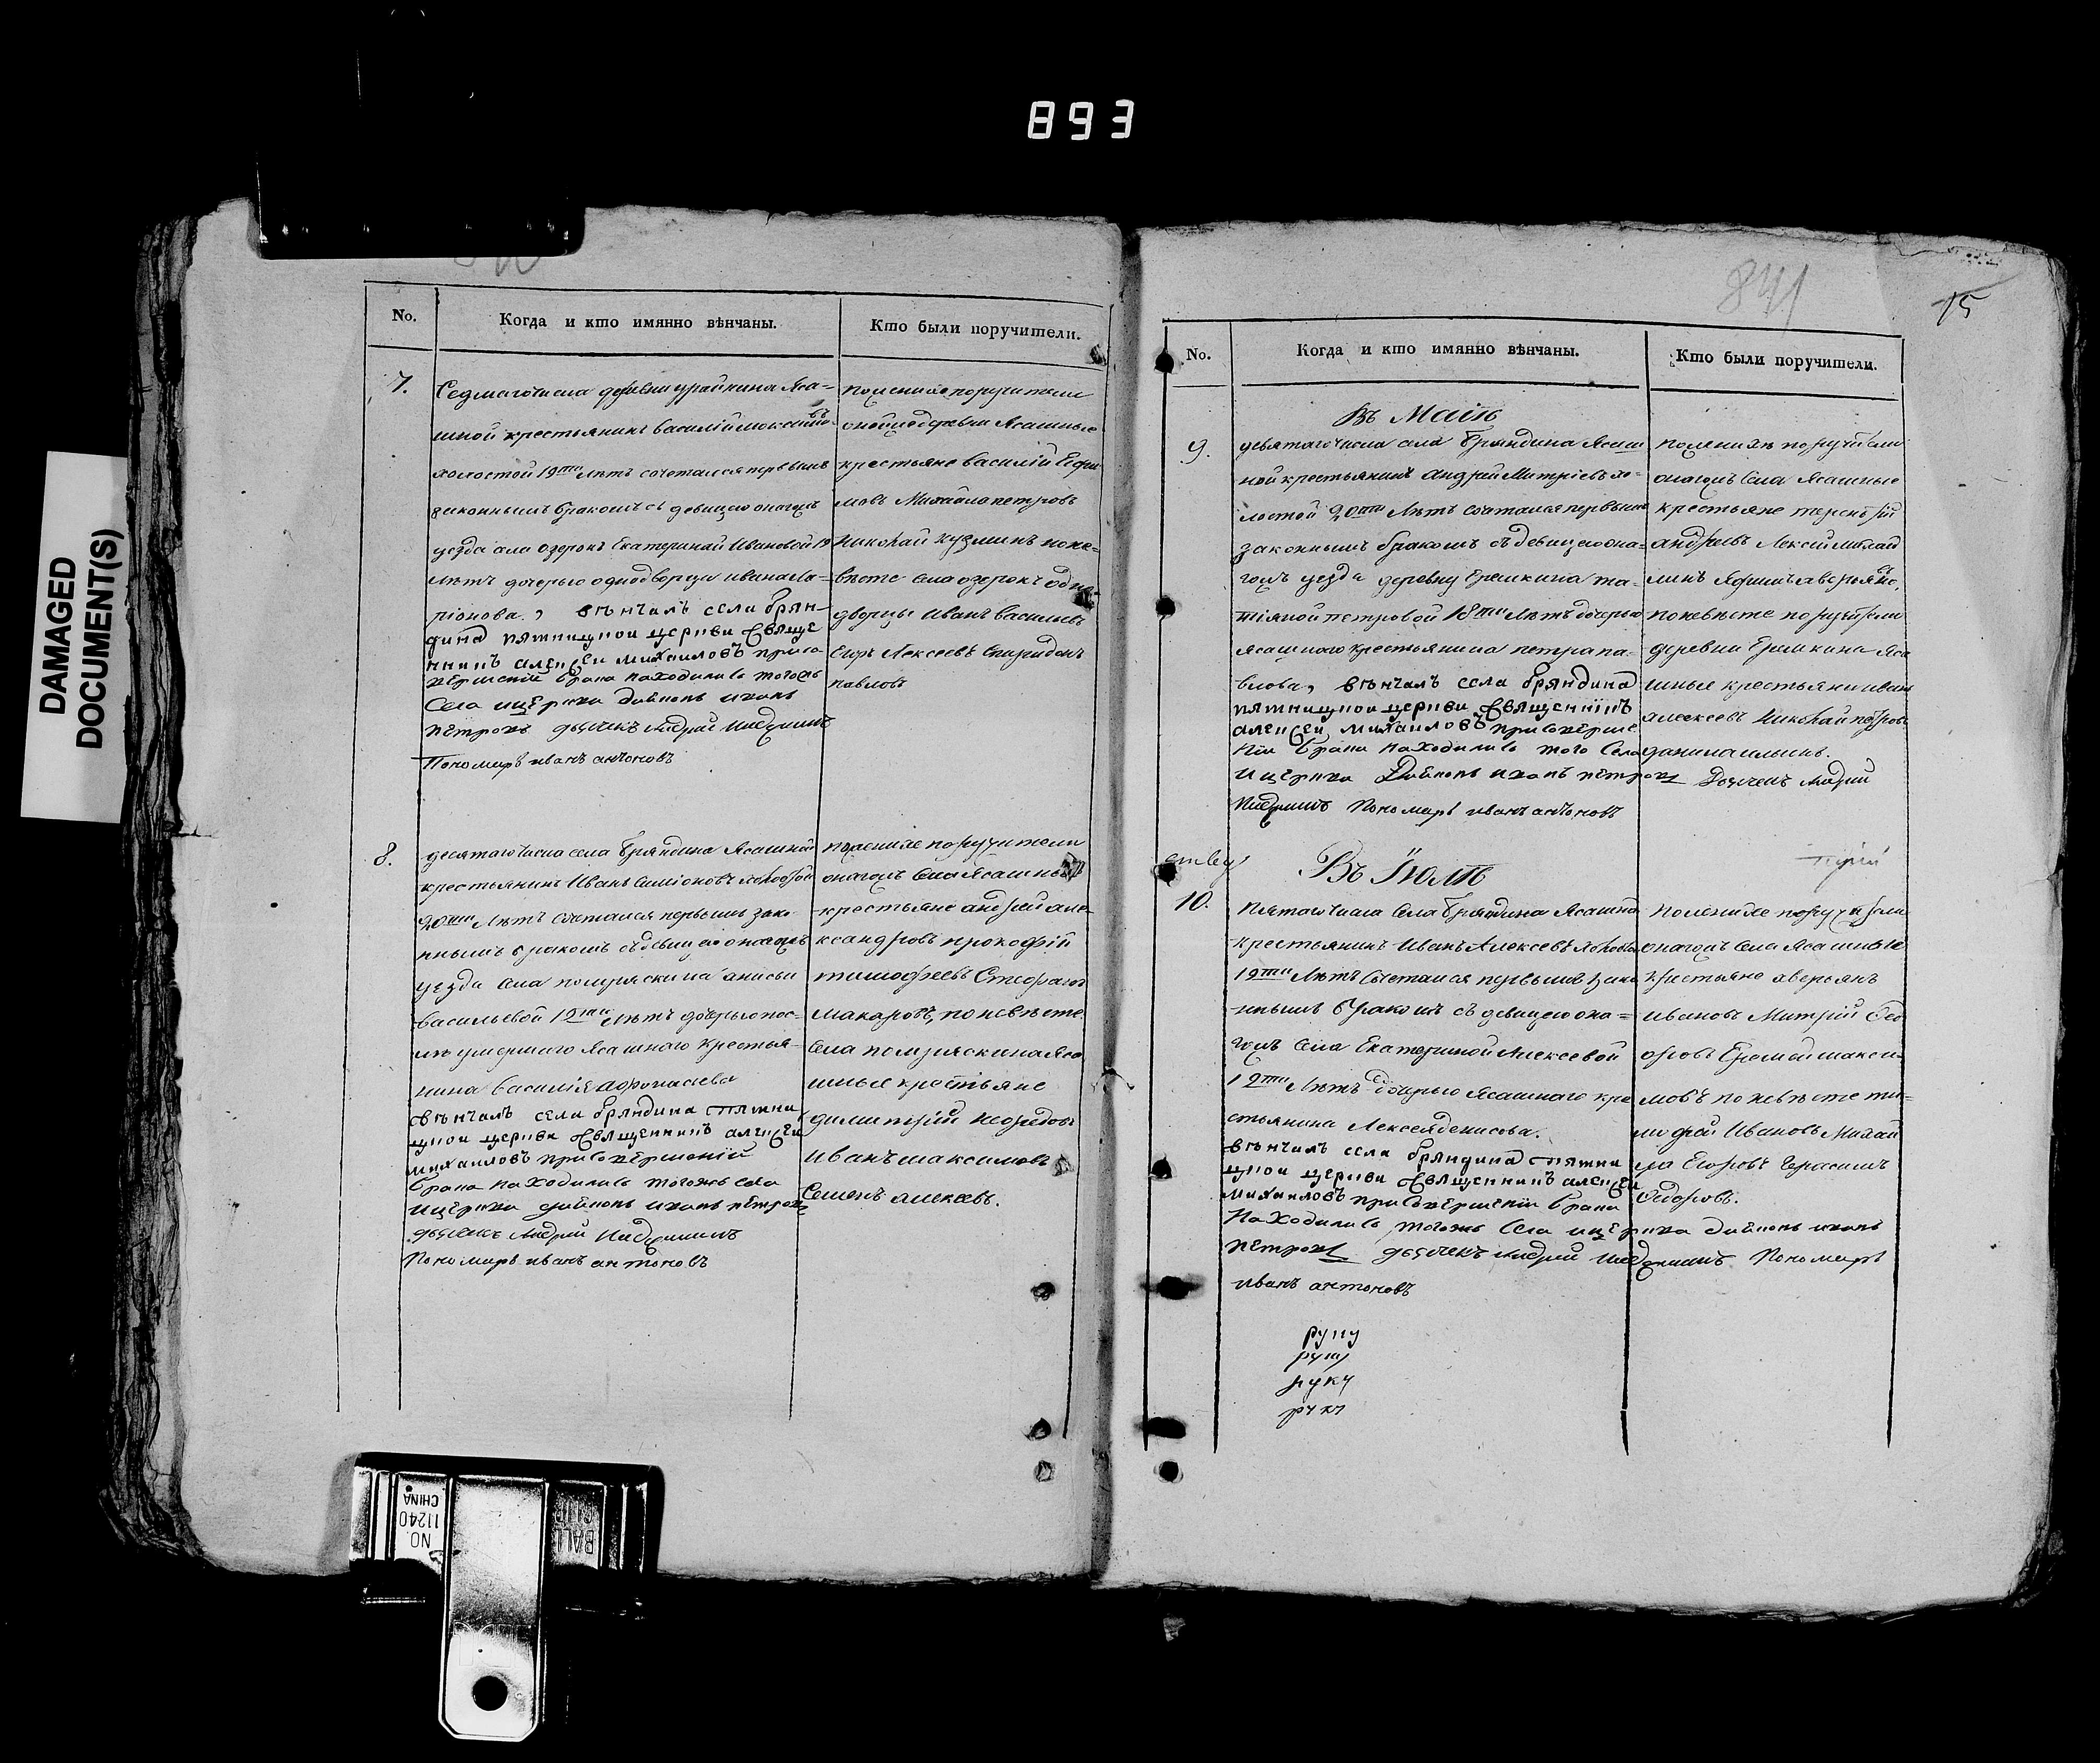 893
DAMAGED
DOCUMENT(S)
No.
Когда и кто имянно вѣнчаны.
Кто были поручители.
7.
Седмаго числа деревни урайкина Яса-
шной крестьянинъ василий
холостой 19ти лѣтъ сочетался первымъ
законнымъ бракомъ съ девицею онагожъ
уезда села озерокъ Екатериной Ивановой 19
лѣтъ дочерью однодворца ивана ла-
ріонова, вѣнчалъ села брян-
дина пятницкои церкви Священ
никъ алексеи михаиловъ при со
вершеніи брака находились тогожъ
села и церкви дьяконъ иванъ
петровъ дьячекъ Андрей
Пономарь иванъ антоновъ
по женихе поручители
оной деревни Ясашные
крестьяне василий Ефи
мовъ Михайло петровъ
Николай кузминъ по не-
вѣсте села озерокъ одно
дворцы Иванъ васильевъ
Егоръ Алексеевъ Спиридонъ
павловъ
8.
десятаго числа села Бряндина Ясашной
крестьянинъ Иванъ Симіоновъ холостой
20ти лѣтъ сочетался первымъ зако
ннымъ бракомъ съ девицею онагожъ
уезда села помряскина анисьи
васильевой 19ти лѣтъ дочерью пос-
лѣ умершаго Ясашнаго крестья-
нина василія афонасьева
вѣнчалъ села бряндина пятни
цкои церкви Священникъ алексеи
михаиловъ при совершеніи
брака находились тогожъ села
и церкви дьяконъ иванъ петровъ
дьячекъ Андрей
Пономарь иванъ антоновъ
по женихе поручители
онагожъ села Ясашные
крестьяне андрей але
ксандровъ прокофій
тимофеевъ Стефанъ
макаровъ, по невѣсте
села помряскина Яса
шные крестьяне
димитрій
Иванъ максимовъ
Семенъ алексевъ.
841
15
No.
Когда и кто имянно вѣнчаны.
Кто были поручители.
Въ Маіѣ
9.
девятаго числа села Бряндина Ясаш
ной крестьянинъ андрей Митріевъ хо-
лостой 20ти лѣтъ сочетался первымъ
законнымъ бракомъ съ девицею она-
гожъ уезда деревни Ерыкина та-
тіяной петровой 18ти лѣтъ дочерью
ясашнаго крестьянина петра па-
влова, вѣнчалъ села бряндина
пятницкои церкви Священникъ
алексеи михаиловъ при соверше
ніи брака находились того села
и церкви Дьяконъ иванъ петровъ Дьячекъ Андрей
Пономарь иванъ антоновъ
по женихѣ поручители
онагожъ села Ясашные
крестьяне терентій
андреевъ Алексей михай
линъ Яфимъ аверьянов
по невѣсте поручители
деревни Ерыкина Яса
шные крестьяни иванъ
алексеевъ Николай петровъ
данила ильинъ.
Въ Іюлѣ
10.
пятаго числа села Бряндина Ясашно
крестьянинъ Иванъ Алексеевъ холосто
19ти лѣтъ сочетался первымъ зако
ннымъ бракомъ съ девицею она-
гожъ села Екатериной Алексеевой
19ти лѣтъ дочерью Ясашнаго кре
стьянина Алексея денисова.
вѣнчалъ села бряндина пятни
цкои церкви Священникъ алексеи
михаиловъ при совершеніи брака
находились тогожъ села и церкви дьяконъ иванъ
петровъ дьячекъ Андрей Пономарь
иванъ антоновъ
по женихе поручители
онагожъ села Ясашные
крестьяне аверьянъ
ивановъ Митрій Фед
оровъ Еремей макси
мовъ по невѣсте ти-
мофей Ивановъ Михай
ла Егоровъ Герасимъ
Федоровъ.
руку
руку
руку
руку
NO.
11240
CHINA